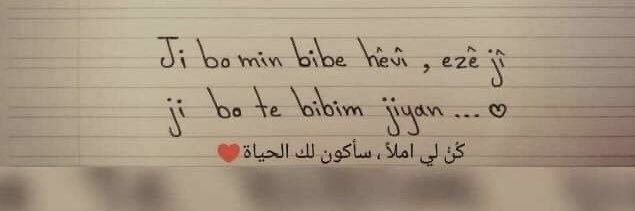 Ji bo min bibe hêvî , ezê jî
ji bo te bibim jiyan ... ♡
كُنْ لي املاً ، سأكون لك الحياة ❤